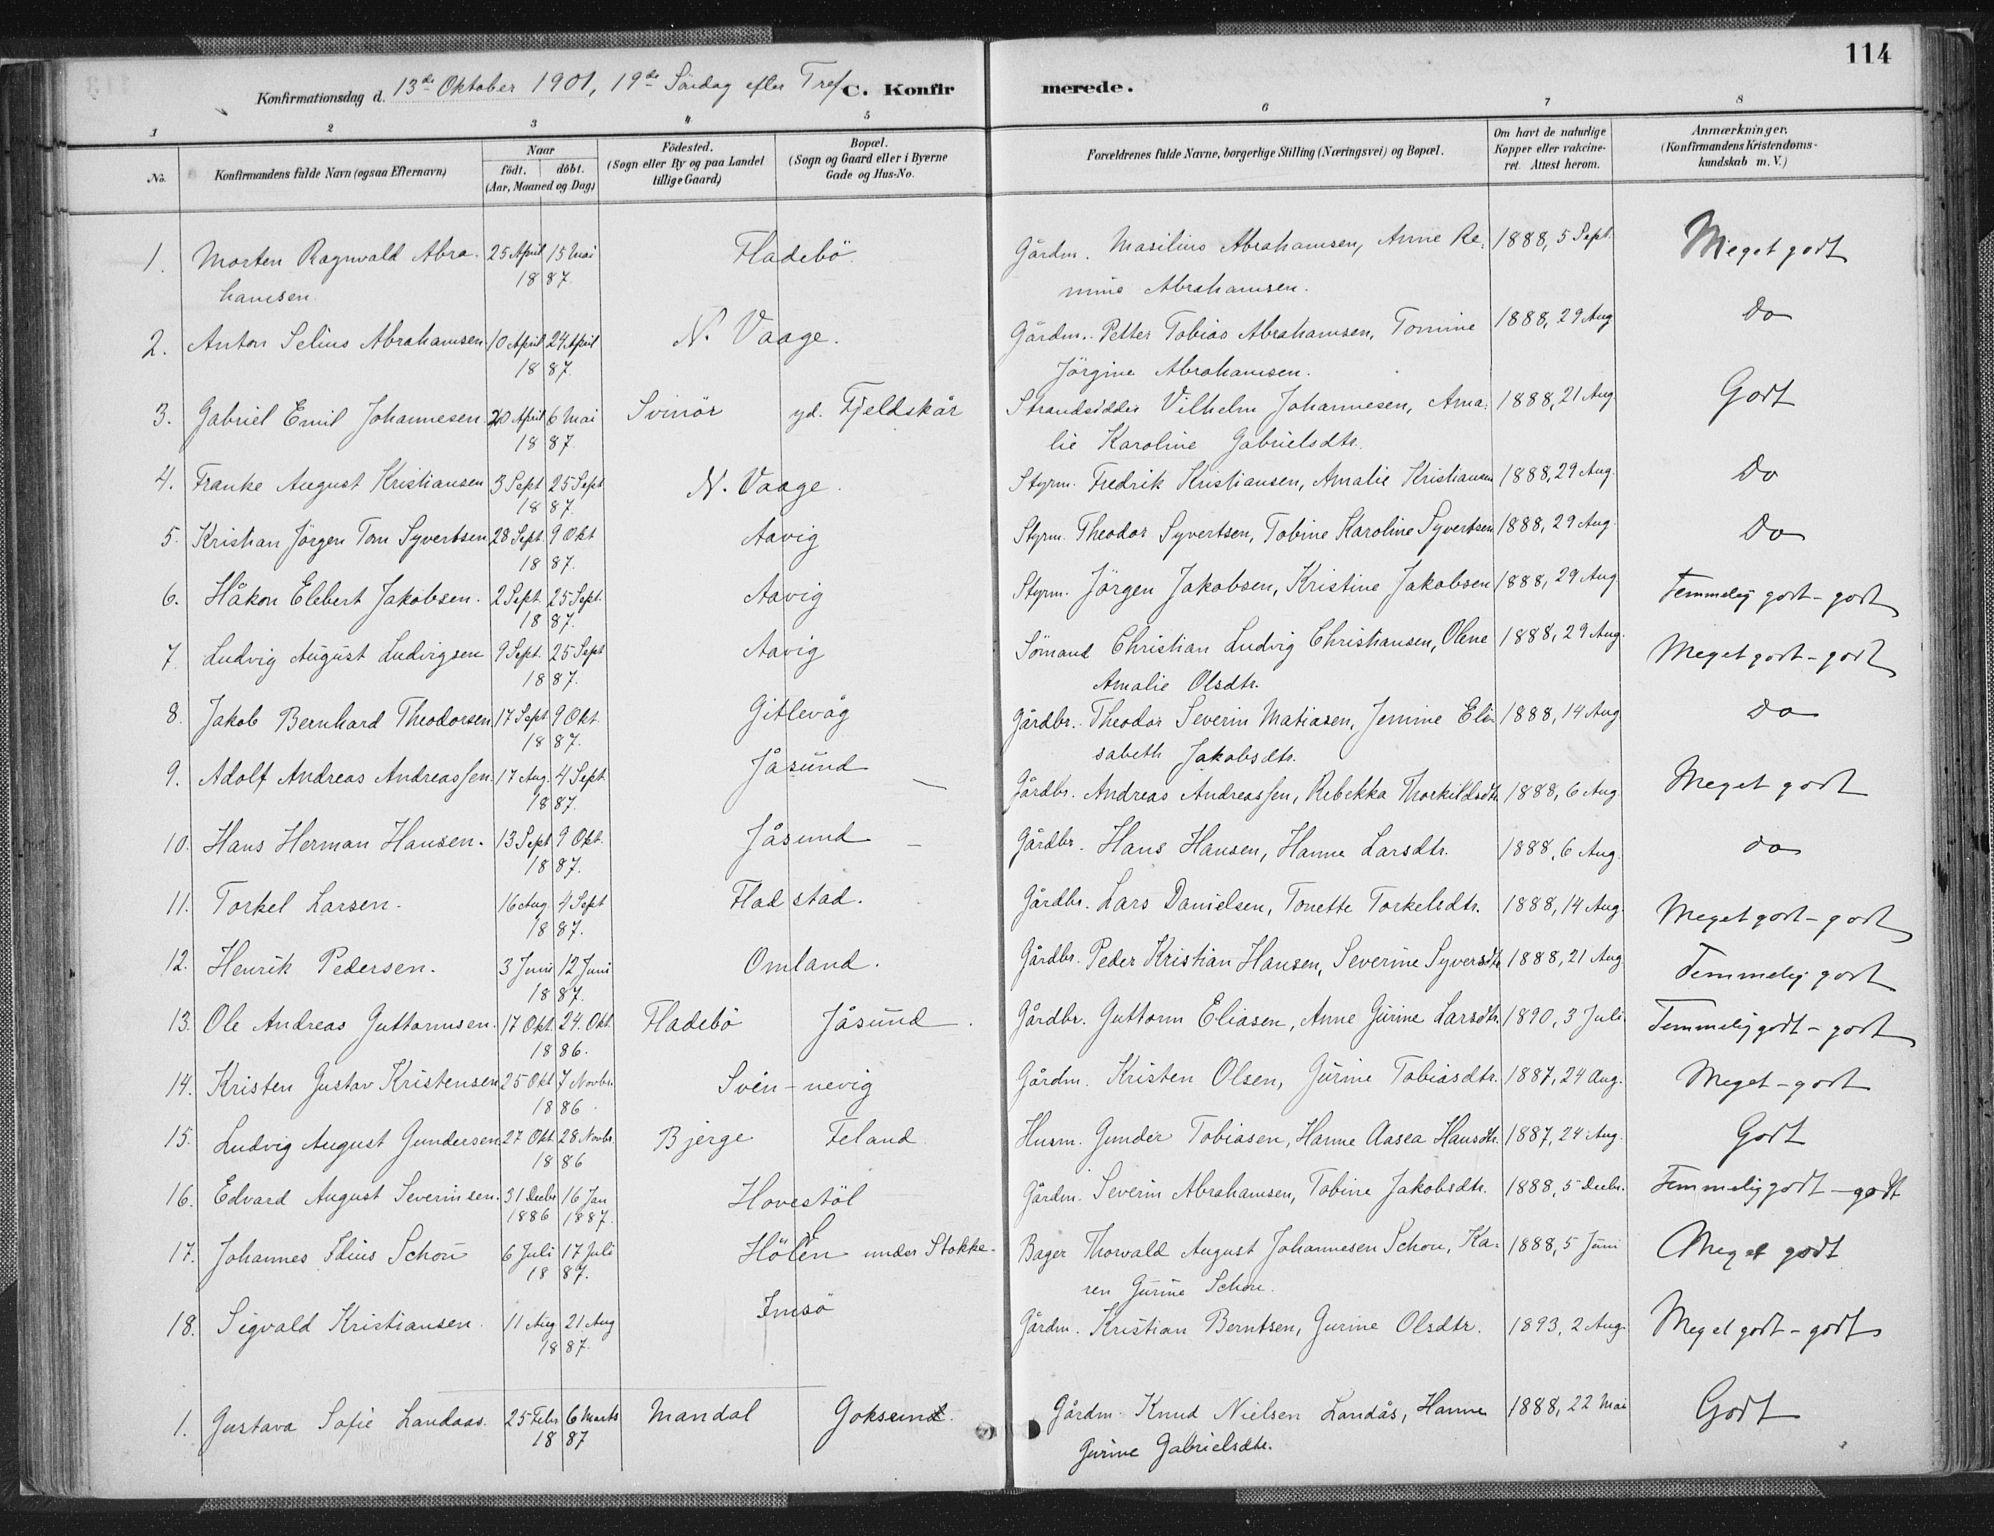 114
Konfirmationsdag d. 13de Oktober 1901, 19de Söndag efter Tref. C. Konfirmerede.
1 2 3 4 5 6 7 8
No. | Konfirmandens fulde Navn (ogsaa Efternavn) | Naar födt. döbt. (Aar, Maaned og Dag) | Födested. (Sogn eller By og paa Landet tillige Gaard) | Bopæl. (Sogn og Gaard eller i Byerne Gade og Hus-No. | Forældrenes fulde Navne, borgerlige Stilling (Næringsvei) og Bopæl. | Om havt de naturlige Kopper eller vakcineret. Attest herom. | Anmærkninger. (Konfirmandens Kristendomskundskab m. V.)
1. Morten Ragnvald Abra- 25 April 15 Mai Fladebö. Gårdm. Masilius Abrahamsen, Anne Re- 1888, 5 Sept. Meget godt
hamsen. 1887. mine Abrahamsen.
2. Anton Selius Abrahamsen 10 April 24 April N. Vaage. Gårdm. Petter Tobias Abrahamsen, Tomine 1888, 29 Aug Do
1887. Jörgine Abrahamsen.
3. Gabriel Emil Johannesen. 20 April 6 Mai Svinör yd. Fjeldskår Strandsidder Vilhelm Johannesen, Ama- 1888, 21 Aug Godt
1887. lie Karoline Gabrielsdtr.
4. Franke August Kristiansen 3 Sept 25 Sept N. Vaage. Styrm. Fredrik Kristiansen, Amalie Kristiansen 1888, 29 Aug. Do
1887.
5. Kristian Jörgen Tom Syvertsen 28 Sept. 9 Okt Aavig Styrm. Theodor Syvertsen, Tobine Karoline Syvertsen 1888, 29 Aug. Do
1887.
6. Håkon Elebert Jakobsen. 2 Sept. 25 Sept. Aavig Styrm. Jörgen Jakobsen, Kristine Jakobsen 1888, 29 Aug Temmelig godt - godt
1887.
7. Ludvig August Ludvigsen 9 Sept. 25 Sept Aavig Sömand Christian Ludvig Christiansen, Olene 1888, 29 Aug. Meget godt - godt
1887. Amalie Olsdtr.
8. Jakob Bernhard Theodorsen 17 Sept 9 Okt. Gitlevåg Gårdbr. Theodor Severin Matiasen, Jemine Eli- 1888, 14 Aug Do
1887. sabeth Jakobsdtr.
9. Adolf Andreas Andreassen. 17 Aug. 4 Sept. Jåsund Gårdbr. Andreas Andreassen, Rebekka Thorkildsdtr. 1888, 6 Aug Meget godt
1887.
10. Hans Herman Hansen. 13 Sept 9 Okt. Jåsund Gårdbr. Hans Hansen, Hanne Larsdtr. 1888, 6 Aug. do
1887.
11. Torkel Larsen. 16 Aug 4 Sept Fladstad. Gårdbr. Lars Danielsen, Tonette Torkelsdtr. 1888, 14 Aug. Meget godt - godt
1887.
12. Henrik Pedersen. 3 Juni 12 Juni Omland. Gårdbr. Peder Kristian Hansen, Severine Syversdtr 1888, 21 Aug Temmelig godt
1887.
13. Ole Andreas Guttormsen. 17 Okt. 24. Okt. Fladebö Jåsund. Gårdbr. Guttorm Eliasen, Anne Gurine Larsdtr. 1890, 3 Juli Temmelig godt - godt
1886.
14. Kristen Gustav Kristensen 25 Okt 7 Novbr. Svennevig Gårdm. Kristen Olsen, Gurine Tobiasdtr. 1887, 24 Aug. Meget - godt
1886.
15. Ludvig August Gundersen 27 Okt. 28 Novbr. Bjerge Feland. Husm. Gunder Tobiasen, Hanne Aasea Hansdtr. 1887, 24 Aug. Godt
1886
16. Edvard August Severinsen. 31 Decbr 16 Jan Hovestöl Gårdm. Severin Abrahamsen, Tobine Jakobsdtr. 1888, 5 Decbr. Temmelig godt - godt
1886 1887.
17. Johannes Idius Schou 6 Juli 17 Juli Hölen under Stokke. Bager Thorvald August Johannesen Schou, Ka- 1888, 5 Juni Meget godt.
1887. ren Gurine Schou.
18. Sigvald Kristiansen. 11 Aug 21 Aug Imsö Gårdm. Kristian Berntsen, Gurine Olsdtr. 1893, 2 Aug. Meget godt - godt
1887.
1. Gustava Sofie Landaas. 25 Febr 6 Marts Mandal Goksem. Gårdm. Knud Nielsen Landås, Hanne 1888, 22 Mai Godt
1887 Gurine Gabrielsdtr.